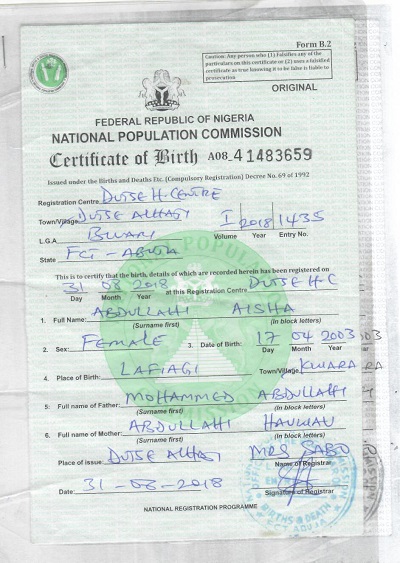 Form B.2
Caution: Any person who (1) Falsifies any of the
particulars on this certificate or (2) uses a falsified
certificate as true knowing it to be false is liable to
prosecution
ORIGINAL
FEDERAL REPUBLIC OF NIGERIA
NATIONAL POPULATION COMMISSION
Certificate of Birth A08 41483659
Issued under the Births and Deaths Etc. (Compulsory Registration) Decree No. 69 of 1992
Registration Centre DUTSE H. CENTRE
Town/Village DUTSE ALHAJI I 2018 1435
L.G.A BWARI Volume Year Entry No.
State FCT - ABUJA
This is to certify that the birth, details of which are recorded herein has been registered on
31 08 2018 at this Registration Centre DUTSE H-C
Day Month Year
1. Full Name: ABDULLAHI AISHA
(Surname first) (In block letters)
2. Sex: FEMALE 3. Date of Birth: 17 04 2003
Day Month Year
4. Place of Birth: LAFIAGI Town/Village KWARA
5. Full name of Father: MOHAMMED ABDULLAHI
(Surname first) (In block letters)
6. Full name of Mother: ABDULLAHI HAUWAU
(Surname first) (In block letters)
Place of issue DUTSE ALHAJI MRS SABO
Name of Registrar
Date: 31-08-2018
Signature of Registrar
NATIONAL REGISTRATION PROGRAMME
BIRTHS & DEATH
ABUJA